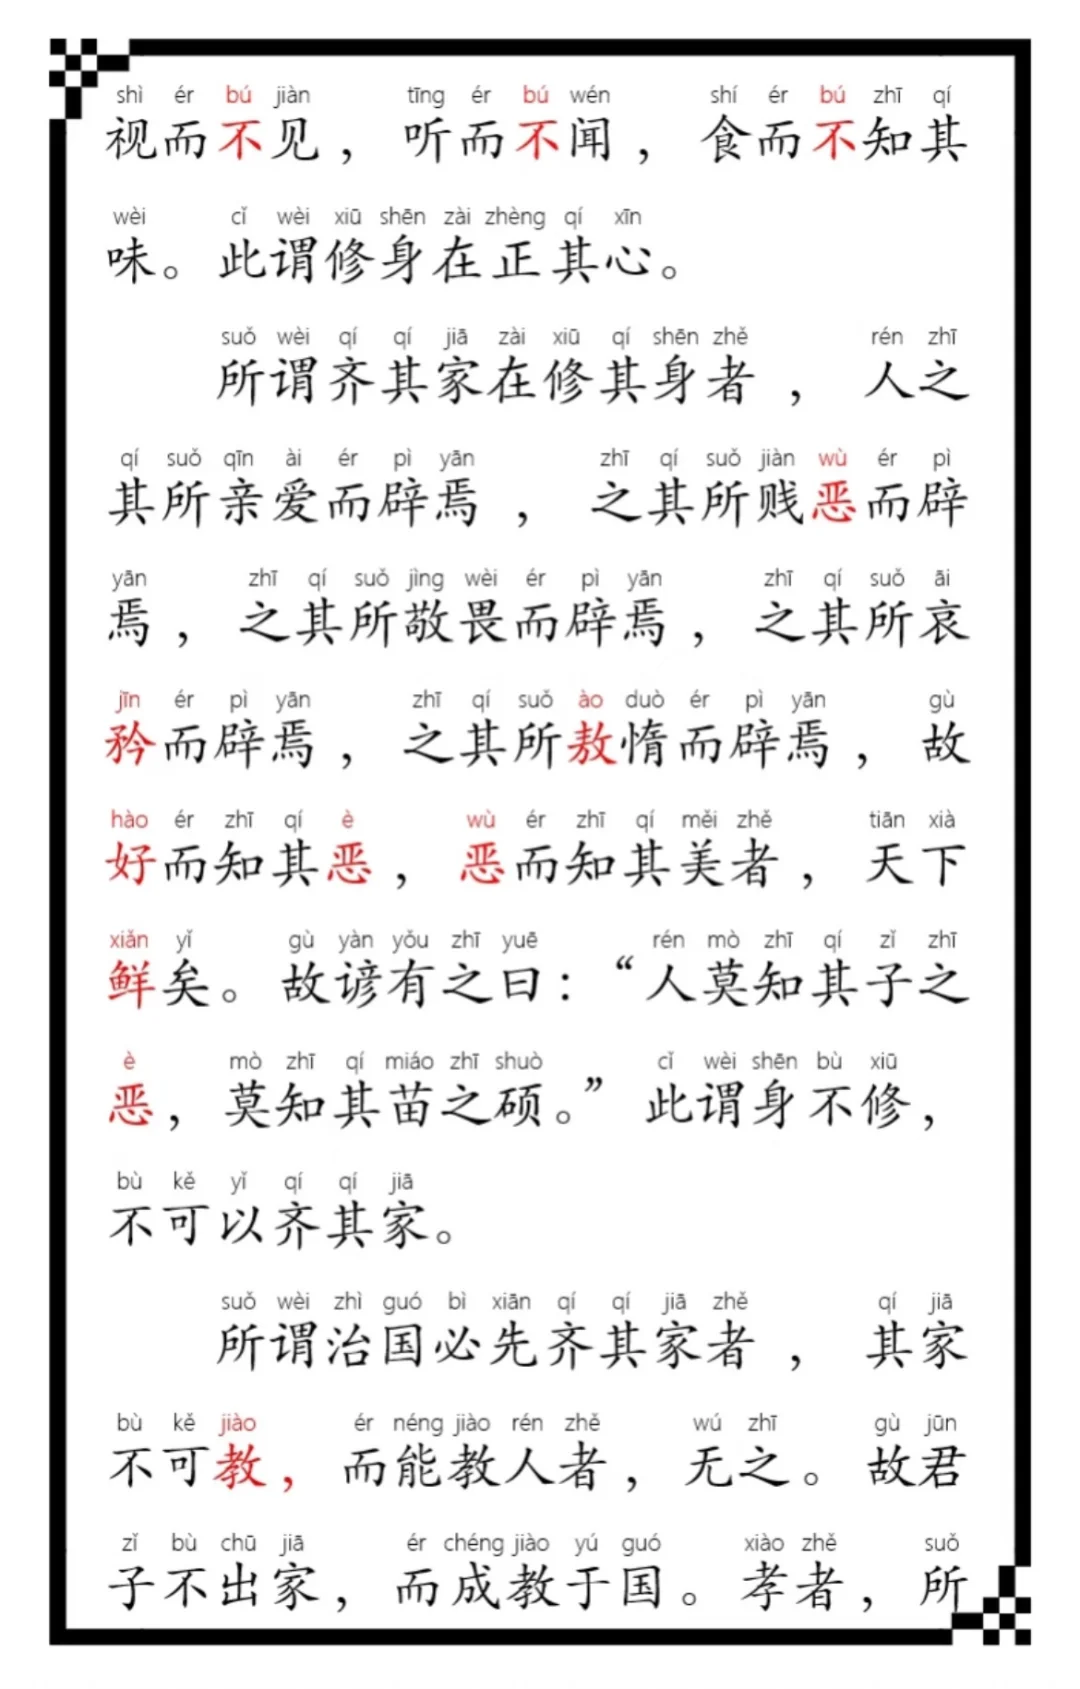 shì ér bú jiàn tīng ér bú wén shí ér bú zhī qí
视而不见，听而不闻，食而不知其
wèi cǐ wèi xiū shēn zài zhèng qí xīn
味。此谓修身在正其心。
suǒ wèi qí qí jiā zài xiū qí shēn zhě rén zhī
所谓齐其家在修其身者，人之
qí suǒ qīn ài ér pì yān zhī qí suǒ jiàn wù ér pì
其所亲爱而辟焉，之其所贱恶而辟
yān zhī qí suǒ jìng wèi ér pì yān zhī qí suǒ āi
焉，之其所敬畏而辟焉，之其所哀
jīn ér pì yān zhī qí suǒ ào duò ér pì yān gù
矜而辟焉，之其所敖惰而辟焉，故
hào ér zhī qí è wù ér zhī qí měi zhě tiān xià
好而知其恶，恶而知其美者，天下
xiǎn yǐ gù yàn yǒu zhī yuē rén mò zhī qí zǐ zhī
鲜矣。故谚有之曰：“人莫知其子之
è mò zhī qí miáo zhī shuò cǐ wèi shēn bù xiū
恶，莫知其苗之硕。”此谓身不修，
bù kě yǐ qí qí jiā
不可以齐其家。
suǒ wèi zhì guó bì xiān qí qí jiā zhě qí jiā
所谓治国必先齐其家者，其家
bù kě jiào ér néng jiào rén zhě wú zhī gù jūn
不可教，而能教人者，无之。故君
zǐ bù chū jiā ér chéng jiào yú guó xiào zhě suǒ
子不出家，而成教于国。孝者，所